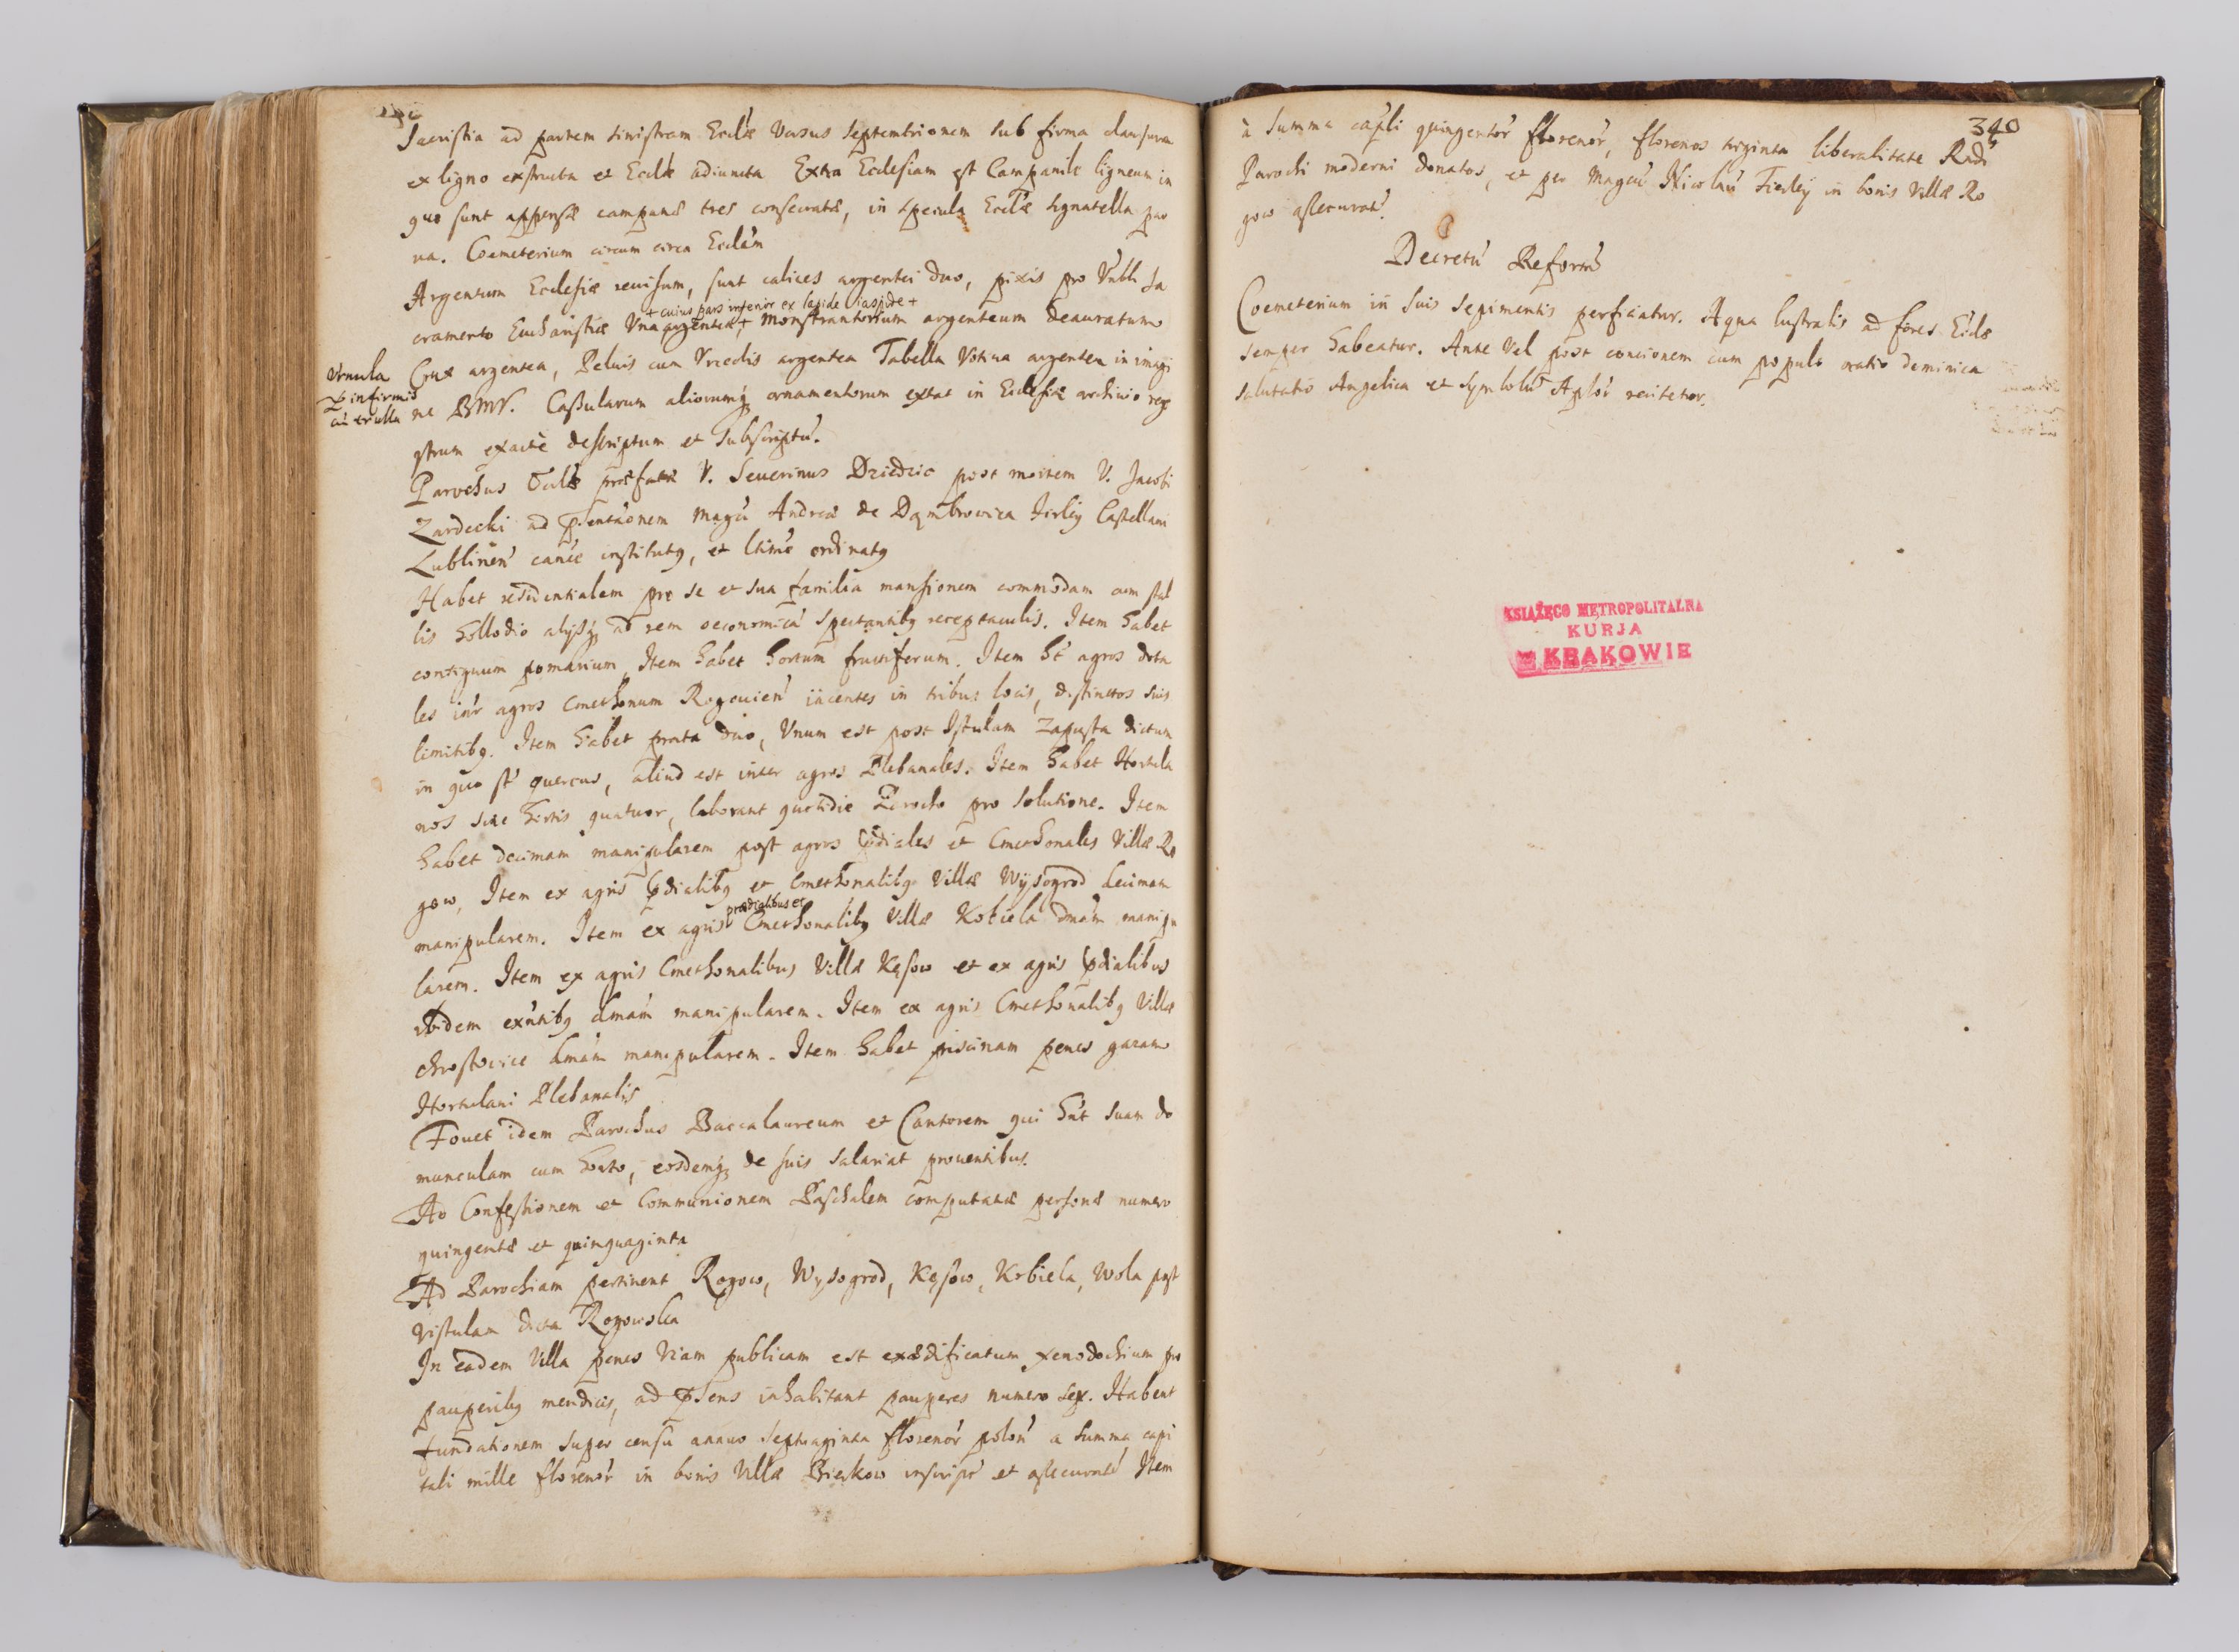 Sacristia ad partem sinistram Ecclae versus septemtrionem sub firma clausura
ex ligno exstructa et Ecclae adiuncta Extra Ecclesiam est Campanile ligneum in
quo sunt appensae campanae tres consecratae, in specula Ecclae signatella par
ua. Coemeterium circum circa Ecclam
Argentum Ecclesiae reuisum, sunt calices argentei duo, pixis pro Vnbli Sa
+ cuius pars inferior ex lapide iaspide +
cramento Eucharistiae Vna argentea + Monstrantorium argenteum deauratum
Crux argentea, Peluis cum Vrceolis argentea Tabella Votiua argentea in imagi
Vrnula
p infirmis
cu trulla
ne BMV. Casularum aliorumq ornamentorum extat in Ecclesiae archiuio rege
strum exacte descriptum et subscriptu.
Parochus Ecclae praefatae V. Seuerinus Dziedzic post mortem V. Jacobi
Zardecki ad pntaonem Magci Andreae de Dąmbrowica Firlej Castellani
Lublinen cance institutq, et ltime ordinatq
Habet residentialem pro se et sua familia mansionem commodam cum stal
lis hollodio alijsq ad rem oeconomica spectantibq receptaculis. Item habet
contiguum pomarium, Item habet hortum fructiferum. Item ht agros dota
les intr agros Cmethonum Rogouien iacentes in tribus locis, distinctos suis
limitibq. Item habet prata duo, Vnum est post Istulam Zapusta dictum
in quo st quercus, aliud est inter agros Plebanales. Item habet Hortula
nos siue hortis quatuor, laborant quotidie Parocho pro solutione. Item
habet decimam manipularem post agros pdiales et Cmethonales Villae Ro
gow, Item ex agris pdialibq et Cmethonalibq Villae Wysogrod decimam
praedialibus et
manipularem. Item ex agris Cmethonalibq Villae Kobiela dmam manipu
larem. Item ex agris Cmethonalibus Villae Kęsow et ex agris pdialibus
ibidem exntibq dmam manipularem. Item ex agris Cmethonalibq Villae
Chrostowice dmam manipularem. Item habet piscinam penes gazam
Hortulani Plebanalis
Fouet idem Parochus Baccalaureum et Cantorem qui hnt suam do
munculam cum horto, eosdemq de suis salariat prouentibus.
Ad Confessionem et Communionem Paschalem computatae personae numero
quingentae et quinquaginta
Ad Parochiam pertinent Rogow, Wysogrod, Kęsow, Kobiela, Wola post
Vistulam dicta Rogowska
In eadem Villa penes Viam publicam est exaedificatum xenodochium pro
pauperibq mendicis, ad psens inhabitant pauperes numero sex. Habent
fundationem super censu annuo septuaginta florenor polon a summa capi
tali mille florenor in bonis Villae Bieskow inscript et assecurata Item
340
à summa capli quingentor florenor, florenos triginta liberalitate Rndi
Parochi moderni donatos, et per Magcu Nicolau Fierley in bonis Villae Ro
gow assecurat.
Decretu Reformis
Coemeterium in suis sepimentis perficiatur. Aqua lustralis ad fores Eclae
semper habeatur. Ante vel post concionem cum populo oratio dominica
salutatio Angelica et symbolu Aplor recitetur.
KSIĄŻĘCO METROPOLITALNA
KURJA
w KRAKOWIE